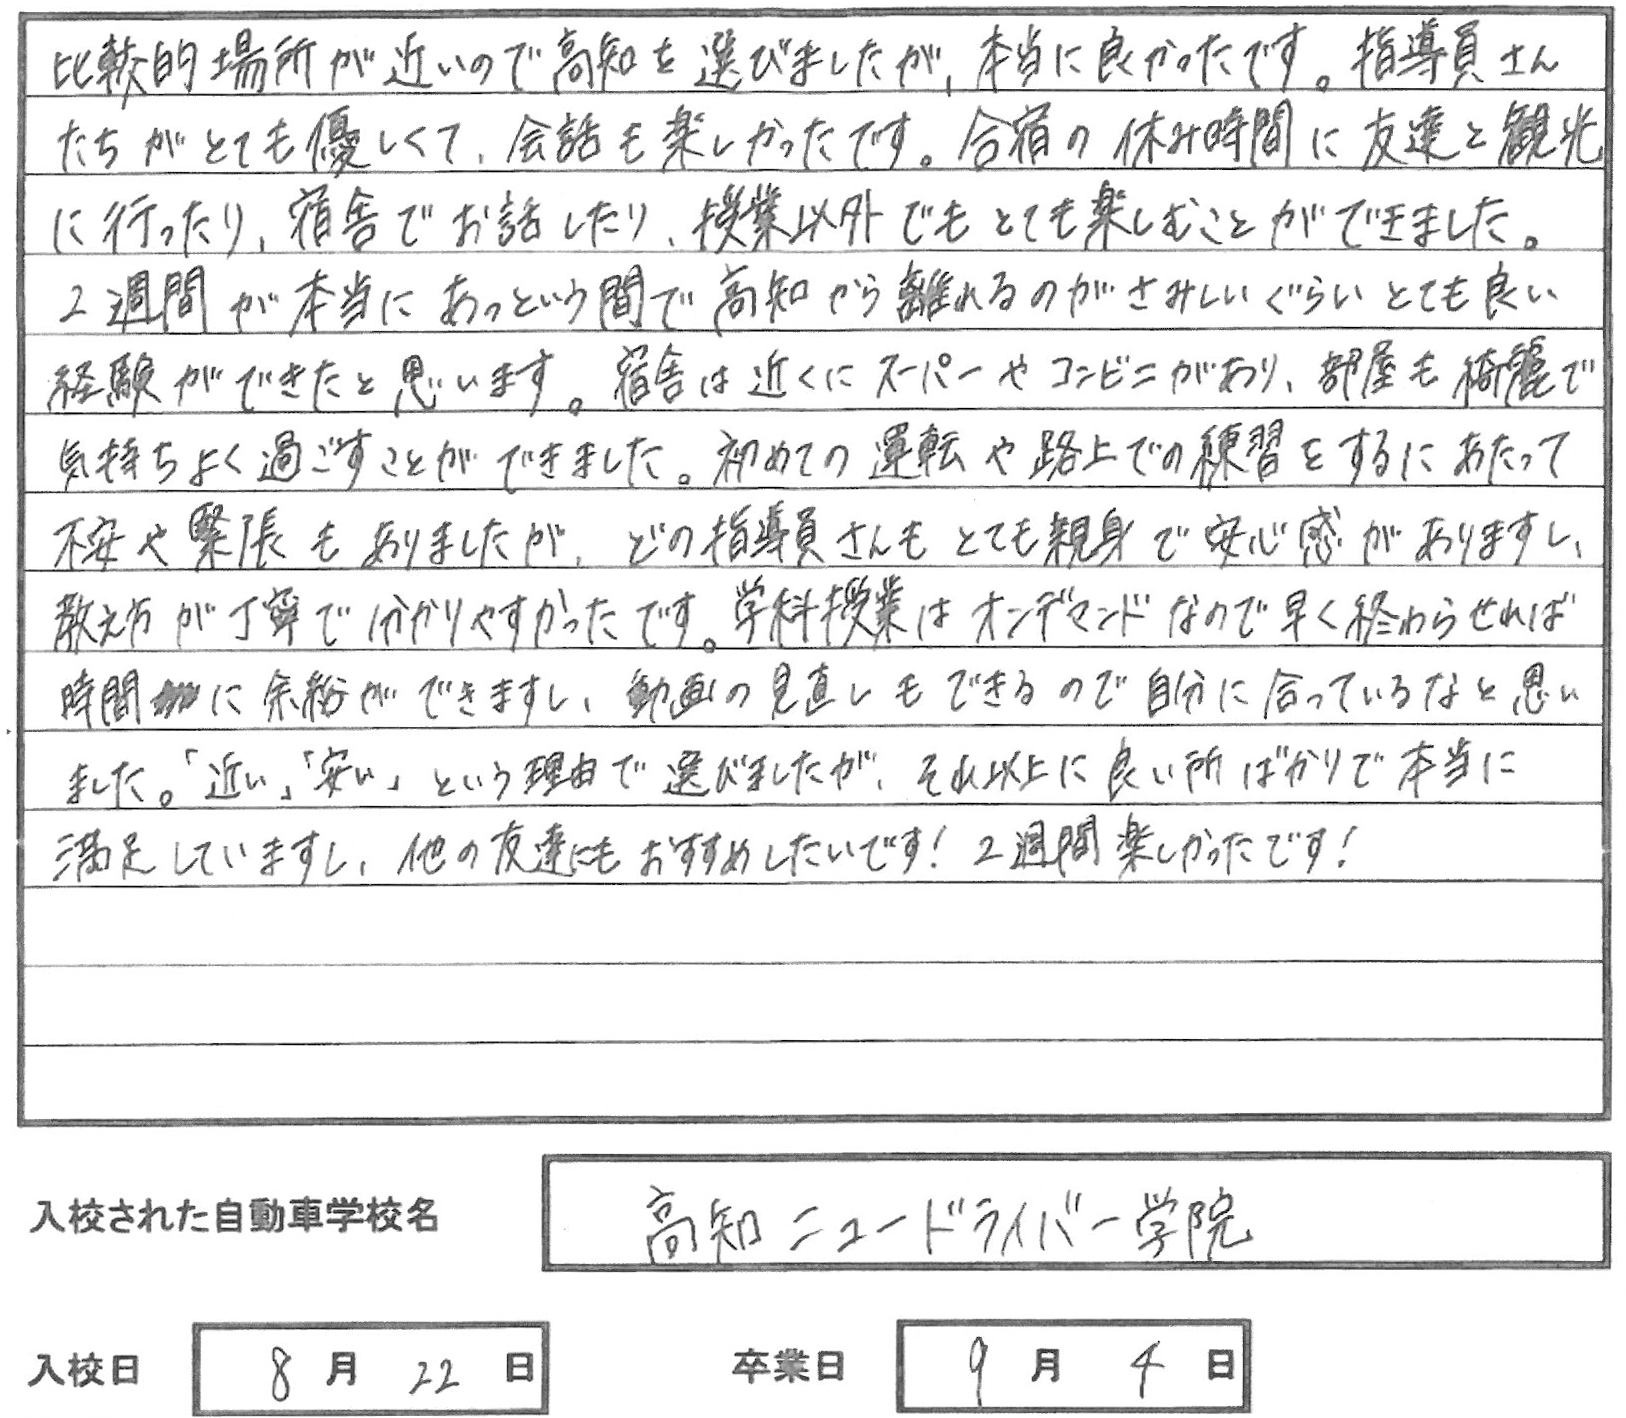 比較的場所が近いので高知を選びましたが、本当に良かったです。指導員さん
たちがとても優しくて、会話も楽しかったです。合宿の休み時間に友達と観光
に行ったり、宿舎でお話したり、授業以外でもとても楽しむことができました。
2週間が本当にあっという間で高知から離れるのがさみしいぐらいとても良い
経験ができたと思います。宿舎は近くにスーパーやコンビニがあり、部屋も綺麗で
気持ちよく過ごすことができました。初めての運転や路上での練習をするにあたって
不安や緊張もありましたが、どの指導員さんもとても親身で安心感がありますし、
教え方が丁寧で分かりやすかったです。学科授業はオンデマンドなので早く終わらせれば
時間に余裕ができますし、動画の見直しもできるので自分に合っているなと思い
ました。「近い」「安い」という理由で選びましたが、それ以上に良い所ばかりで本当に
満足していますし、他の友達にもおすすめしたいです！2週間楽しかったです！
入校された自動車学校名 高知ニュードライバー学院
入校日 8月22日 卒業日 9月4日